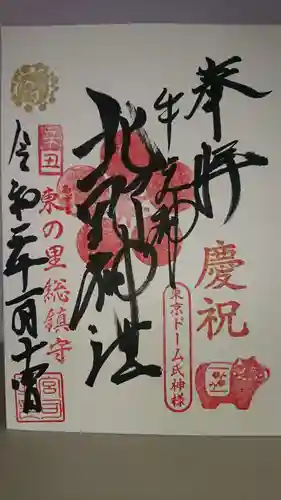 奉拝
慶祝
東京ドーム氏神様
牛天神
北野神社
辛丑
東の里総鎮守
令和三年一月十